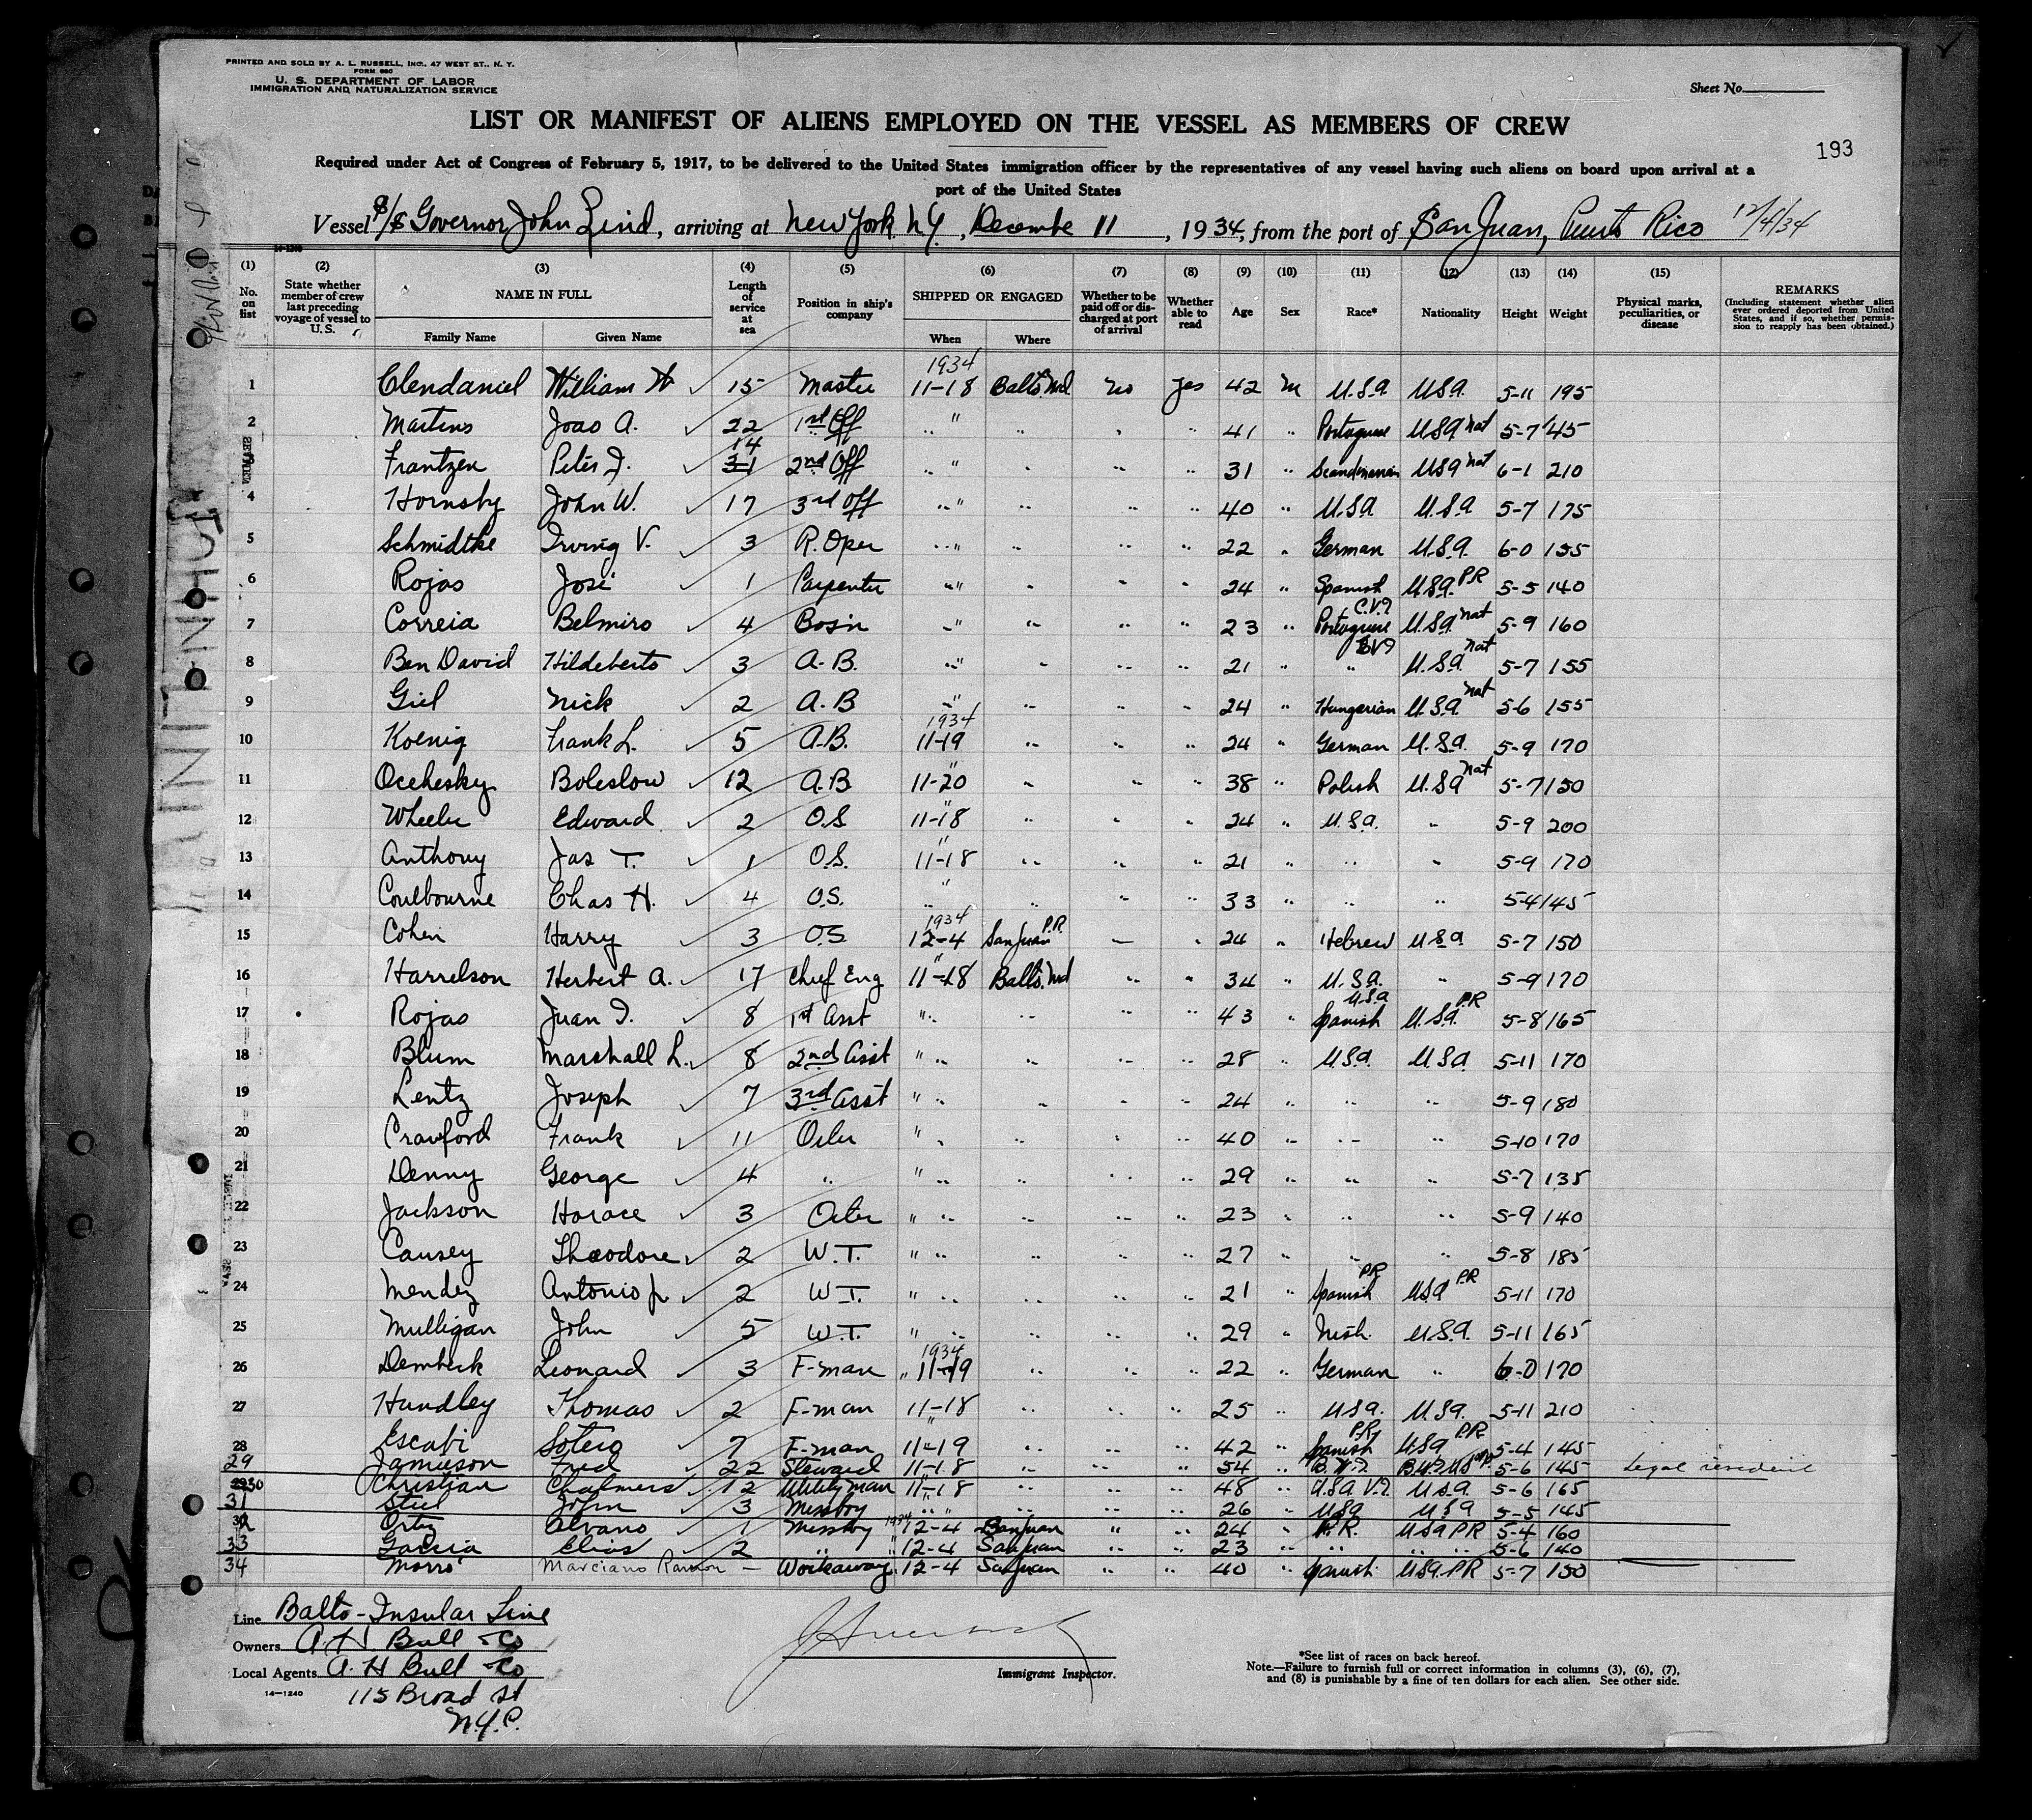 PRINTED AND SOLD BY A. L. RUSSELL, INC., 47 WEST ST., N. Y.
FORM 680
U. S. DEPARTMENT OF LABOR
IMMIGRATION AND NATURALIZATION SERVICE
Sheet No.
LIST OR MANIFEST OF ALIENS EMPLOYED ON THE VESSEL AS MEMBERS OF CREW
193
Required under Act of Congress of February 5, 1917, to be delivered to the United States immigration officer by the representatives of any vessel having such aliens on board upon arrival at a
port of the United States
Vessel S/S Governor John Lind, arriving at New York N.Y., December 11, 1934, from the port of San Juan, Puerto Rico 12/4/34
(1) (2) (3) (4) (5) (6) (7) (8) (9) (10) (11) (12) (13) (14) (15)
No. on list State whether member of crew last preceding voyage of vessel to U. S. NAME IN FULL Family Name Given Name Length of service at sea Position in ship's company SHIPPED OR ENGAGED When Where Whether to be paid off or discharged at port of arrival Whether able to read Age Sex Race* Nationality Height Weight Physical marks, peculiarities, or disease REMARKS (Including statement whether alien ever ordered deported from United States, and if so, whether permission to reapply has been obtained.)
1 Clendaniel William W 15 Master 1934 11-18 Balto. Md No Yes 42 M U.S.A. U.S.A. 5-11 195
2 Martins Joao A. 22 1st Off " " 41 " Portuguese USA nat 5-7 145
3 Frantzen Peter J. 31 14 2nd Off " " 31 " Scandinavian USA nat 6-1 210
4 Hornsby John W. 17 3rd Off " " 40 " U.S.A. U.S.A 5-7 175
5 Schmidtke Irving V. 3 R. Oper " " 22 " German U.S.A. 6-0 155
6 Rojas José 1 Carpenter " " 24 " Spanish U.S.A. P.R 5-5 140
7 Correia Belmiro 4 Bos'n " " 23 " Portuguese C.V.I U.S.A. nat 5-9 160
8 Ben David Hildeberto 3 A.B. " " 21 " " U.S.A. nat 5-7 155
9 Giel Nick 2 A.B " " 24 " Hungarian U.S.A nat 5-6 155
10 Koenig Frank L. 5 A.B. 1934 11-19 " 24 " German U.S.A. 5-9 170
11 Ocehesky Boleslow 12 A.B. 11-20 " 38 " Polish U.S.A nat 5-7 150
12 Wheeler Edward 2 O.S 11-18 " 24 " U.S.A. " 5-9 200
13 Anthony Jas T. 1 O.S. 11-18 " 21 " " " 5-9 170
14 Coulbourne Chas H. 4 O.S. " " 33 " " " 5-4 145
15 Cohen Harry 3 O.S. 1934 12-4 San Juan P.R. — " 24 " Hebrew U.S.A 5-7 150
16 Harrelson Herbert A. 17 Chief Eng 11-18 Balto. Md " " 34 " U.S.A. " 5-9 170
17 Rojas Juan I. 8 1st Asst " " 43 " Spanish U.S.A. P.R 5-8 165
18 Blum Marshall L. 8 2nd Asst " " 28 " U.S.A. U.S.A 5-11 170
19 Lentz Joseph 7 3rd Asst " " 24 " " " 5-9 180
20 Crawford Frank 11 Oiler " " 40 " " " 5-10 170
21 Denny George 4 " " " 29 " " " 5-7 135
22 Jackson Horace 3 Oiler " " 23 " " " 5-9 140
23 Causey Theodore 2 W.T. " " 27 " " " 5-8 185
24 Mendez Antonio Jr 2 W.T. " " 21 " Spanish P.R USA P.R 5-11 170
25 Mulligan John 5 W.T. " " 29 " Irish U.S.A. 5-11 165
26 Dembeck Leonard 3 F-man 1934 11-19 " 22 " German " 6-0 170
27 Hundley Thomas 2 F-man 11-18 " 25 " U.S.A. U.S.A. 5-11 210
28 Escabi Sotero 7 F-man 11-19 " 42 " Spanish P.R. USA P.R 5-4 145
29 Jamieson Fred 22 Steward 11-18 " 54 " B.W.I. 5-6 145 Legal resident
30 Christian Chalmers 12 Utility man 11-18 " 48 " U.S.A. 5-6 165
31 Stiel John 3 Messboy " " 26 " USA USA 5-5 145
32 Ortiz Alvaro 1 Messboy 1934 12-4 San Juan " 24 " P.R. USA PR 5-4 160
33 Garcia Elias 2 " 12-4 San Juan " 23 " " " 5-6 140
34 Morro Marciano Ramon — Workaway 12-4 San Juan " 40 " Spanish USA. PR 5-7 150
Line Balto-Insular Line
Owners A. H. Bull Co
Local Agents A. H Bull Co
14—1240 115 Broad St
N.Y.C.
Immigrant Inspector.
*See list of races on back hereof.
Note.—Failure to furnish full or correct information in columns (3), (6), (7),
and (8) is punishable by a fine of ten dollars for each alien. See other side.